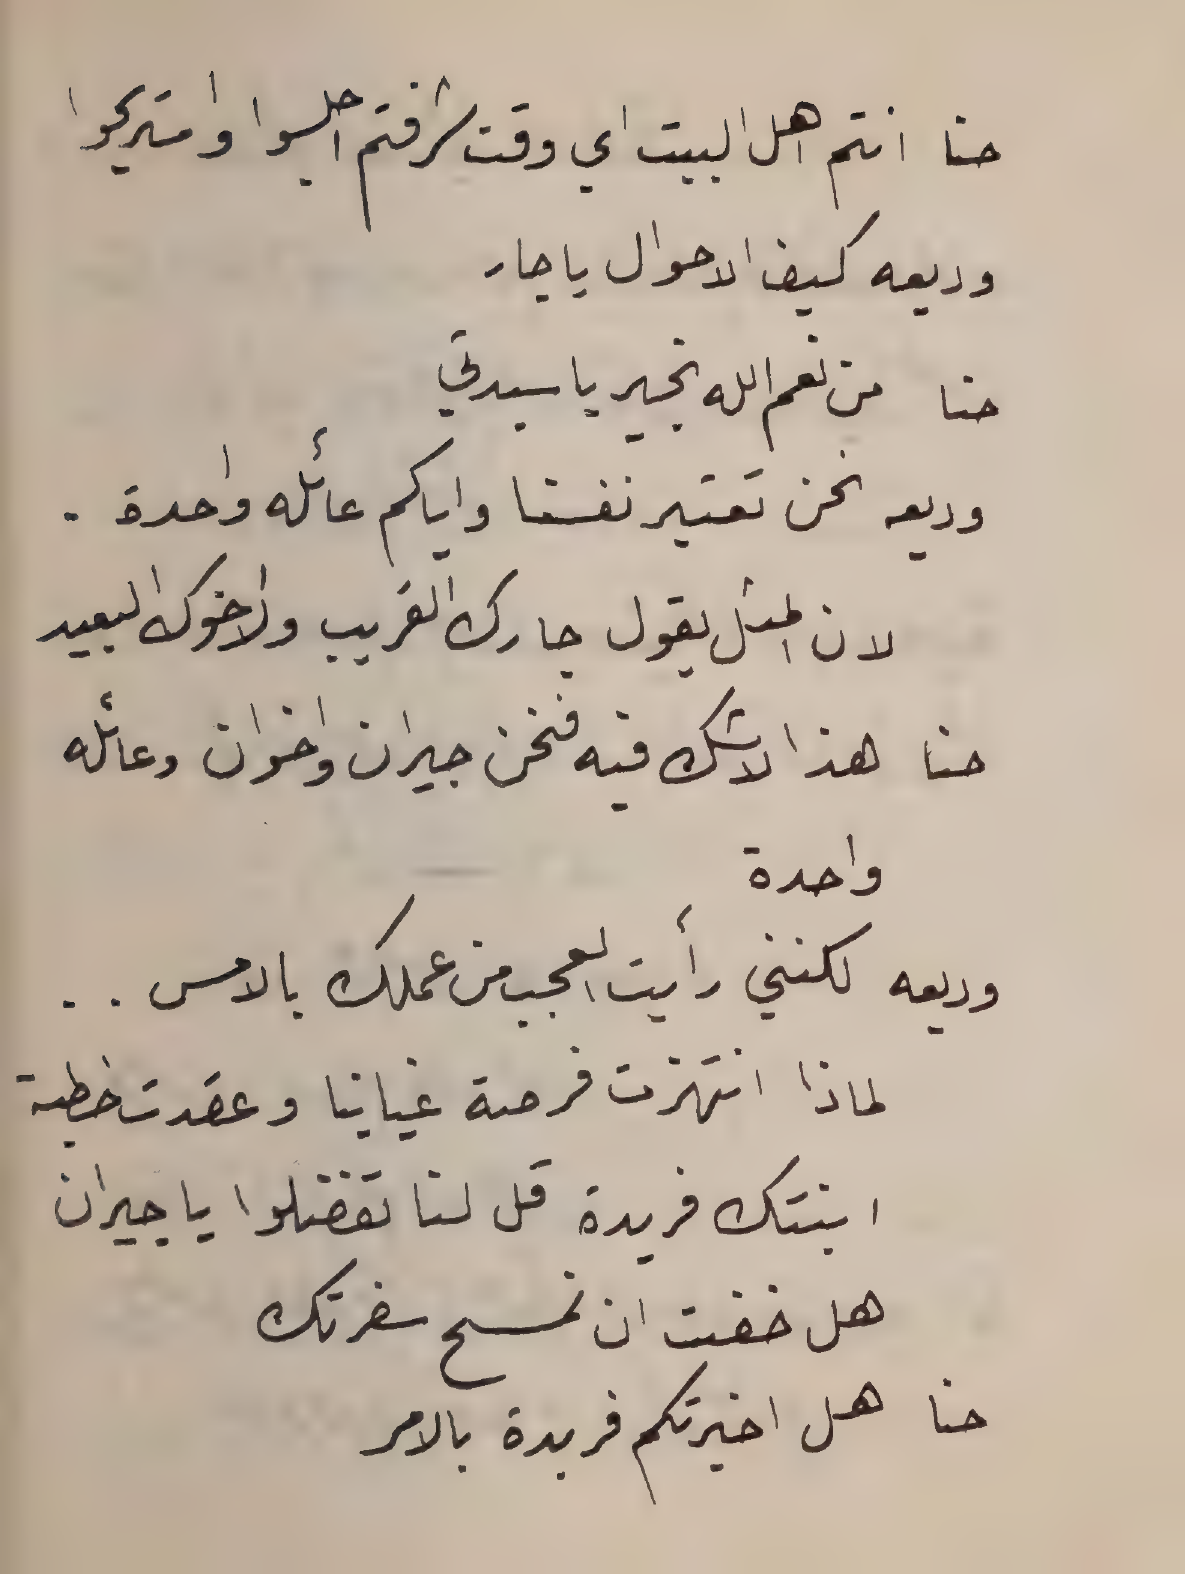 حنا انتم اهل البيت اي وقت شرفتم اجلسوا واستريحوا
وديعه كيف الاحوال ياجار
حنا من نعم الله بخير يا سيدتي
وديعه نحن نعتبر نفسنا واياكم عائله واحدة .
لان المثل يقول جارك القريب ولا اخوك البعيد
حنا هذا لاشك فيه فنحن جيران واخوان وعائله
واحدة
وديعه لكنني رأيت العجب من عملك بالامس . .
لماذا انتهزت فرصة غيابنا وعقدت خطبة
ابنتك فريدة قل لنا تفضلوا يا جيران
هل خفت ان نمسح سفرتك
حنا هل اخبرتكم فريدة بالامر